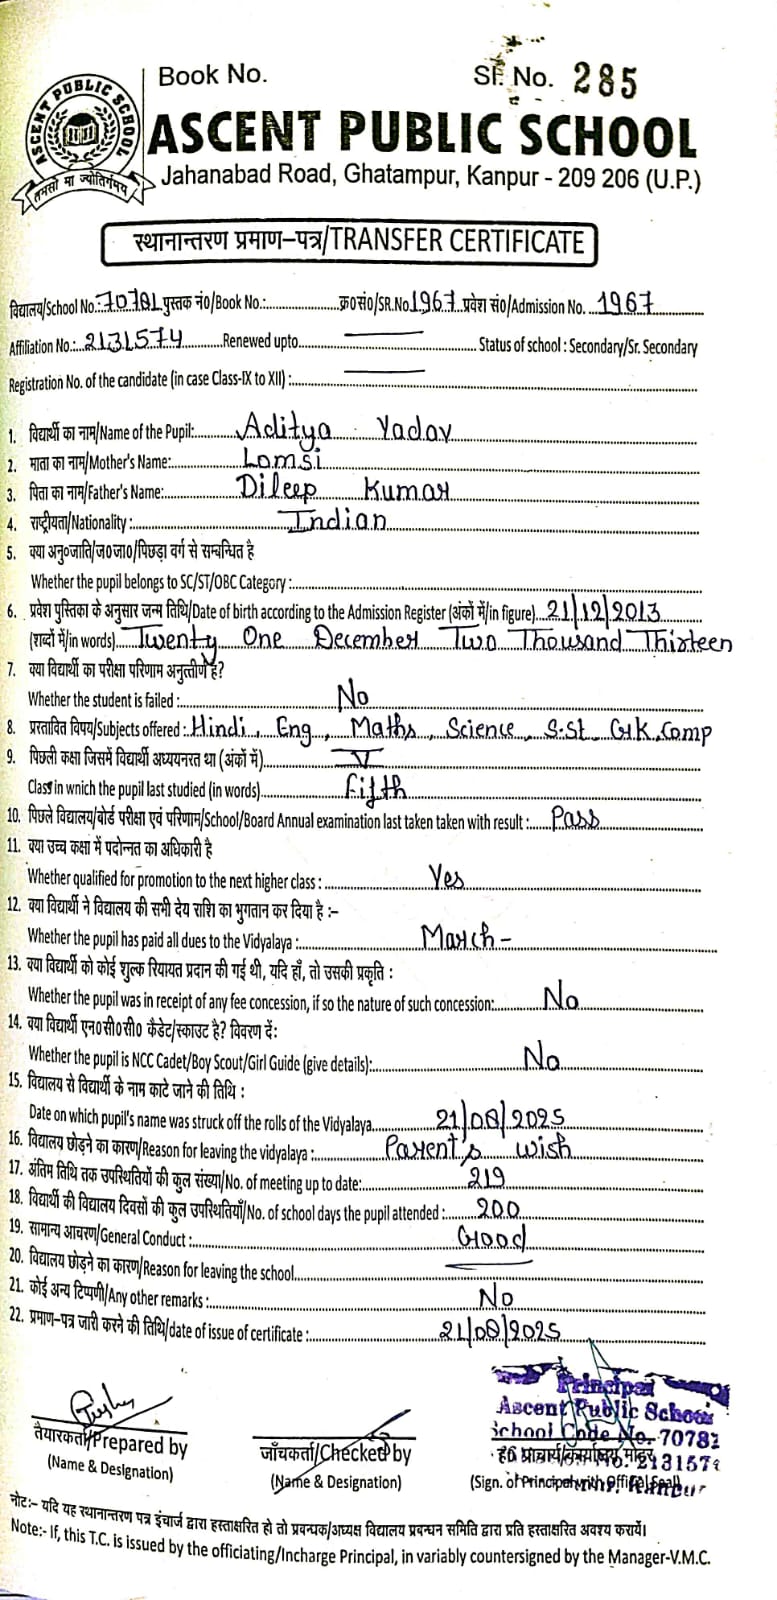 Book No. Sr. No. 285
ASCENT PUBLIC SCHOOL
तमसो मा ज्योतिर्गमय
ASCENT PUBLIC SCHOOL
Jahanabad Road, Ghatampur, Kanpur - 209 206 (U.P.)
स्थानान्तरण प्रमाण–पत्र/TRANSFER CERTIFICATE
विद्यालय/School No.: 70781 पुस्तक नं०/Book No.:............ क्र०सं०/SR.No 1967 प्रवेश सं०/Admission No. 1967
Affiliation No.: 2131574 Renewed upto............ Status of school : Secondary/Sr. Secondary
Registration No. of the candidate (in case Class-IX to XII) :............
1. विद्यार्थी का नाम/Name of the Pupil: Aditya Yadav
2. माता का नाम/Mother's Name: Lomsi
3. पिता का नाम/Father's Name: Dileep Kumar
4. राष्ट्रीयता/Nationality : Indian
5. क्या अनु०जाति/ज०जा०/पिछड़ा वर्ग से सम्बन्धित है
Whether the pupil belongs to SC/ST/OBC Category :............
6. प्रवेश पुस्तिका के अनुसार जन्म तिथि/Date of birth according to the Admission Register (अंकों में/in figure) 21/12/2013
(शब्दों में/in words) Twenty One December Two Thousand Thirteen
7. क्या विद्यार्थी का परीक्षा परिणाम अनुत्तीर्ण है?
Whether the student is failed : No
8. प्रस्तावित विषय/Subjects offered : Hindi, Eng, Maths, Science, S.St. G.K, Comp
9. पिछली कक्षा जिसमें विद्यार्थी अध्ययनरत था (अंकों में) V
Class in wnich the pupil last studied (in words) Fifth
10. पिछले विद्यालय/बोर्ड परीक्षा एवं परिणाम/School/Board Annual examination last taken taken with result : Pass
11. क्या उच्च कक्षा में पदोन्नत का अधिकारी है
Whether qualified for promotion to the next higher class : Yes
12. क्या विद्यार्थी ने विद्यालय की सभी देय राशि का भुगतान कर दिया है :–
Whether the pupil has paid all dues to the Vidyalaya : March -
13. क्या विद्यार्थी को कोई शुल्क रियायत प्रदान की गई थी, यदि हाँ, तो उसकी प्रकृति :
Whether the pupil was in receipt of any fee concession, if so the nature of such concession: No
14. क्या विद्यार्थी एन०सी०सी० कैडेट/स्काउट है? विवरण दें:
Whether the pupil is NCC Cadet/Boy Scout/Girl Guide (give details): No
15. विद्यालय से विद्यार्थी के नाम काटे जाने की तिथि :
Date on which pupil's name was struck off the rolls of the Vidyalaya 21/08/2025
16. विद्यालय छोड़ने का कारण/Reason for leaving the vidyalaya : Parent's wish
17. अंतिम तिथि तक उपस्थितियों की कुल संख्या/No. of meeting up to date: 219
18. विद्यार्थी की विद्यालय दिवसों की कुल उपस्थितियाँ/No. of school days the pupil attended : 200
19. सामान्य आचरण/General Conduct : Good
20. विद्यालय छोड़ने का कारण/Reason for leaving the school............
21. कोई अन्य टिप्पणी/Any other remarks : No
22. प्रमाण–पत्र जारी करने की तिथि/date of issue of certificate : 21/08/2025
Principal
Ascent Public School
School Code No. 70781
तैयारकर्ता/Prepared by जाँचकर्ता/Checked by
(Name & Designation) (Name & Designation) (Sign. of Principal with Official Seal)
नोट:– यदि यह स्थानान्तरण पत्र इंचार्ज द्वारा हस्ताक्षरित हो तो प्रबन्धक/अध्यक्ष विद्यालय प्रबन्धन समिति द्वारा प्रति हस्ताक्षरित अवश्य करायें।
Note:- If, this T.C. is issued by the officiating/Incharge Principal, in variably countersigned by the Manager-V.M.C.